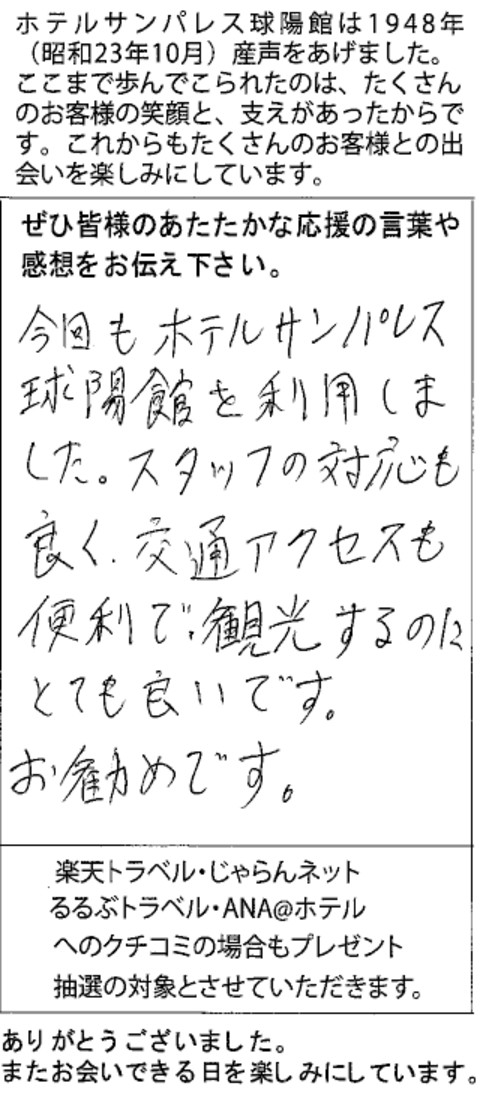 ホテルサンパレス球陽館は1948年
（昭和23年10月）産声をあげました。
ここまで歩んでこられたのは、たくさん
のお客様の笑顔と、支えがあったからで
す。これからもたくさんのお客様との出
会いを楽しみにしています。
ぜひ皆様のあたたかな応援の言葉や
感想をお伝え下さい。
今回もホテルサンパレス
球陽館を利用しま
した。スタッフの対応も
良く、交通アクセスも
便利で、観光するのに
とても良いです。
お勧めです。
楽天トラベル・じゃらんネット
るるぶトラベル・ANA@ホテル
へのクチコミの場合もプレゼント
抽選の対象とさせていただきます。
ありがとうございました。
またお会いできる日を楽しみにしています。